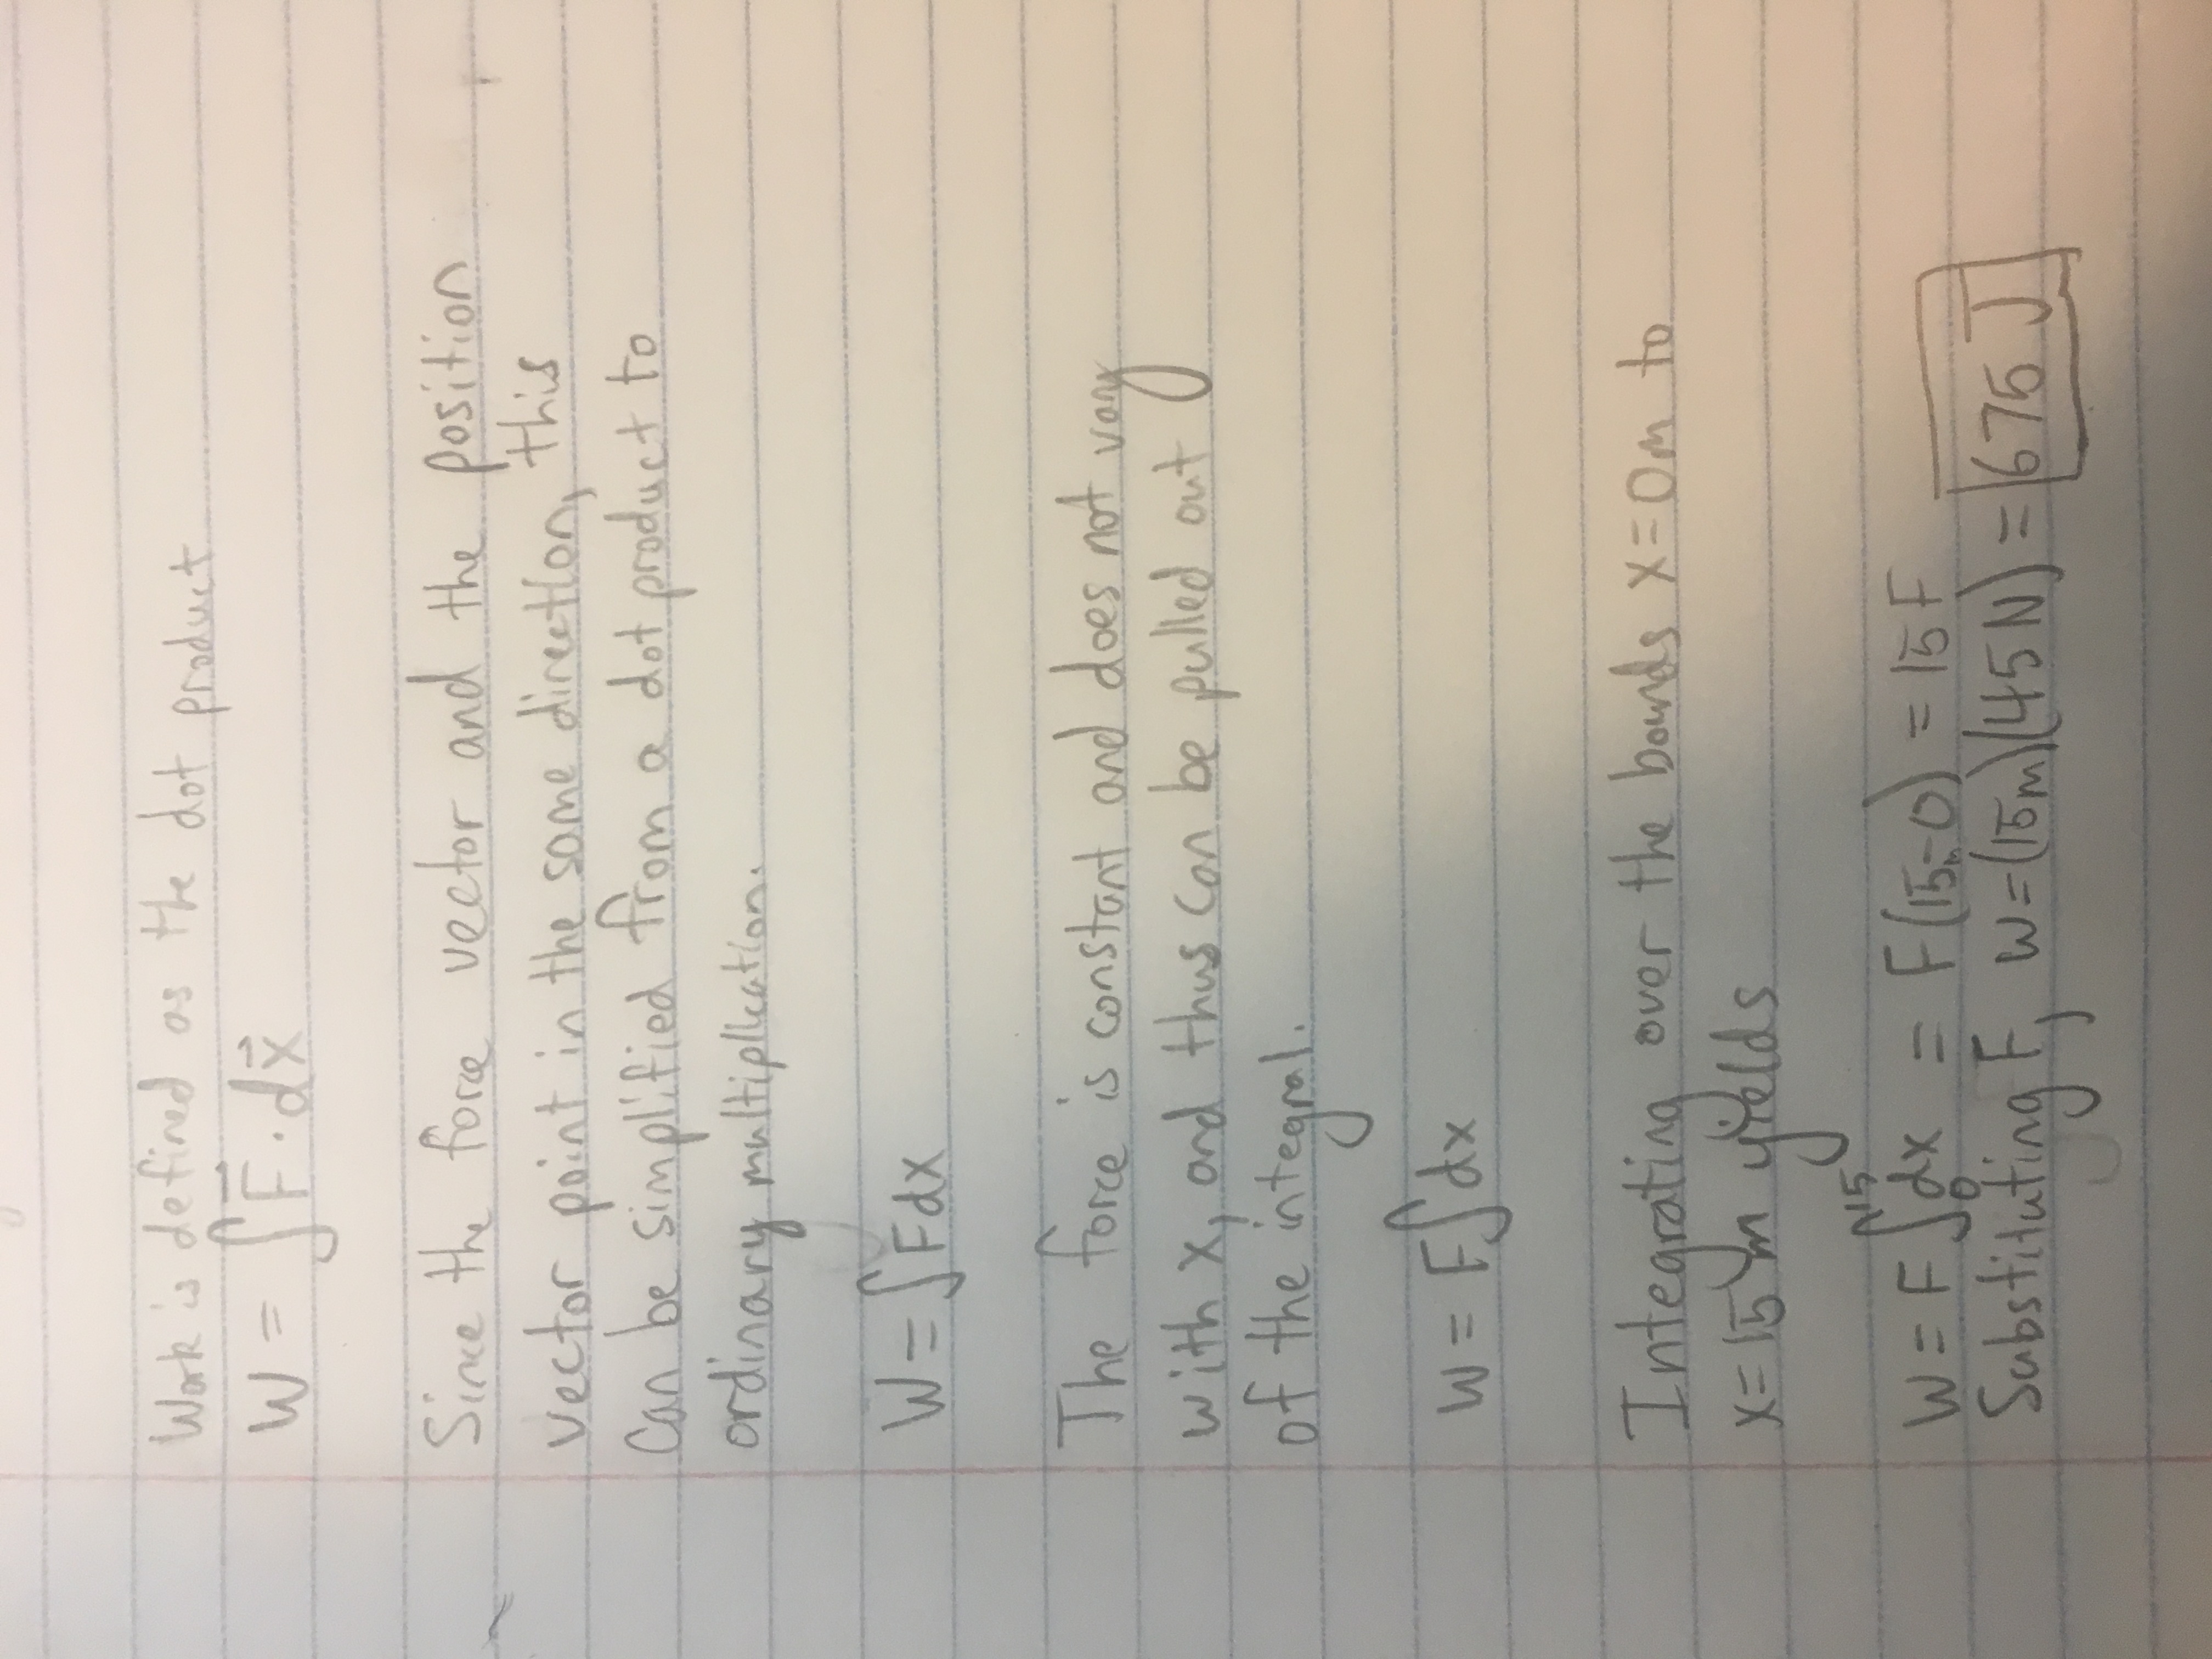 Work is defined as the dot product
W = ∫F⃗ · dx⃗
Since the force vector and the position
vector point in the same direction, this
can be simplified from a dot product to
ordinary multiplication.
W = ∫F dx
The force is constant and does not vary
with x, and thus can be pulled out
of the integral.
W = F∫dx
Integrating over the bounds x=0m to
x=15m yields
W = F∫₀¹⁵dx = F(15m-0) = 15F
Substituting F, W=(15m)(45N) = 675 J